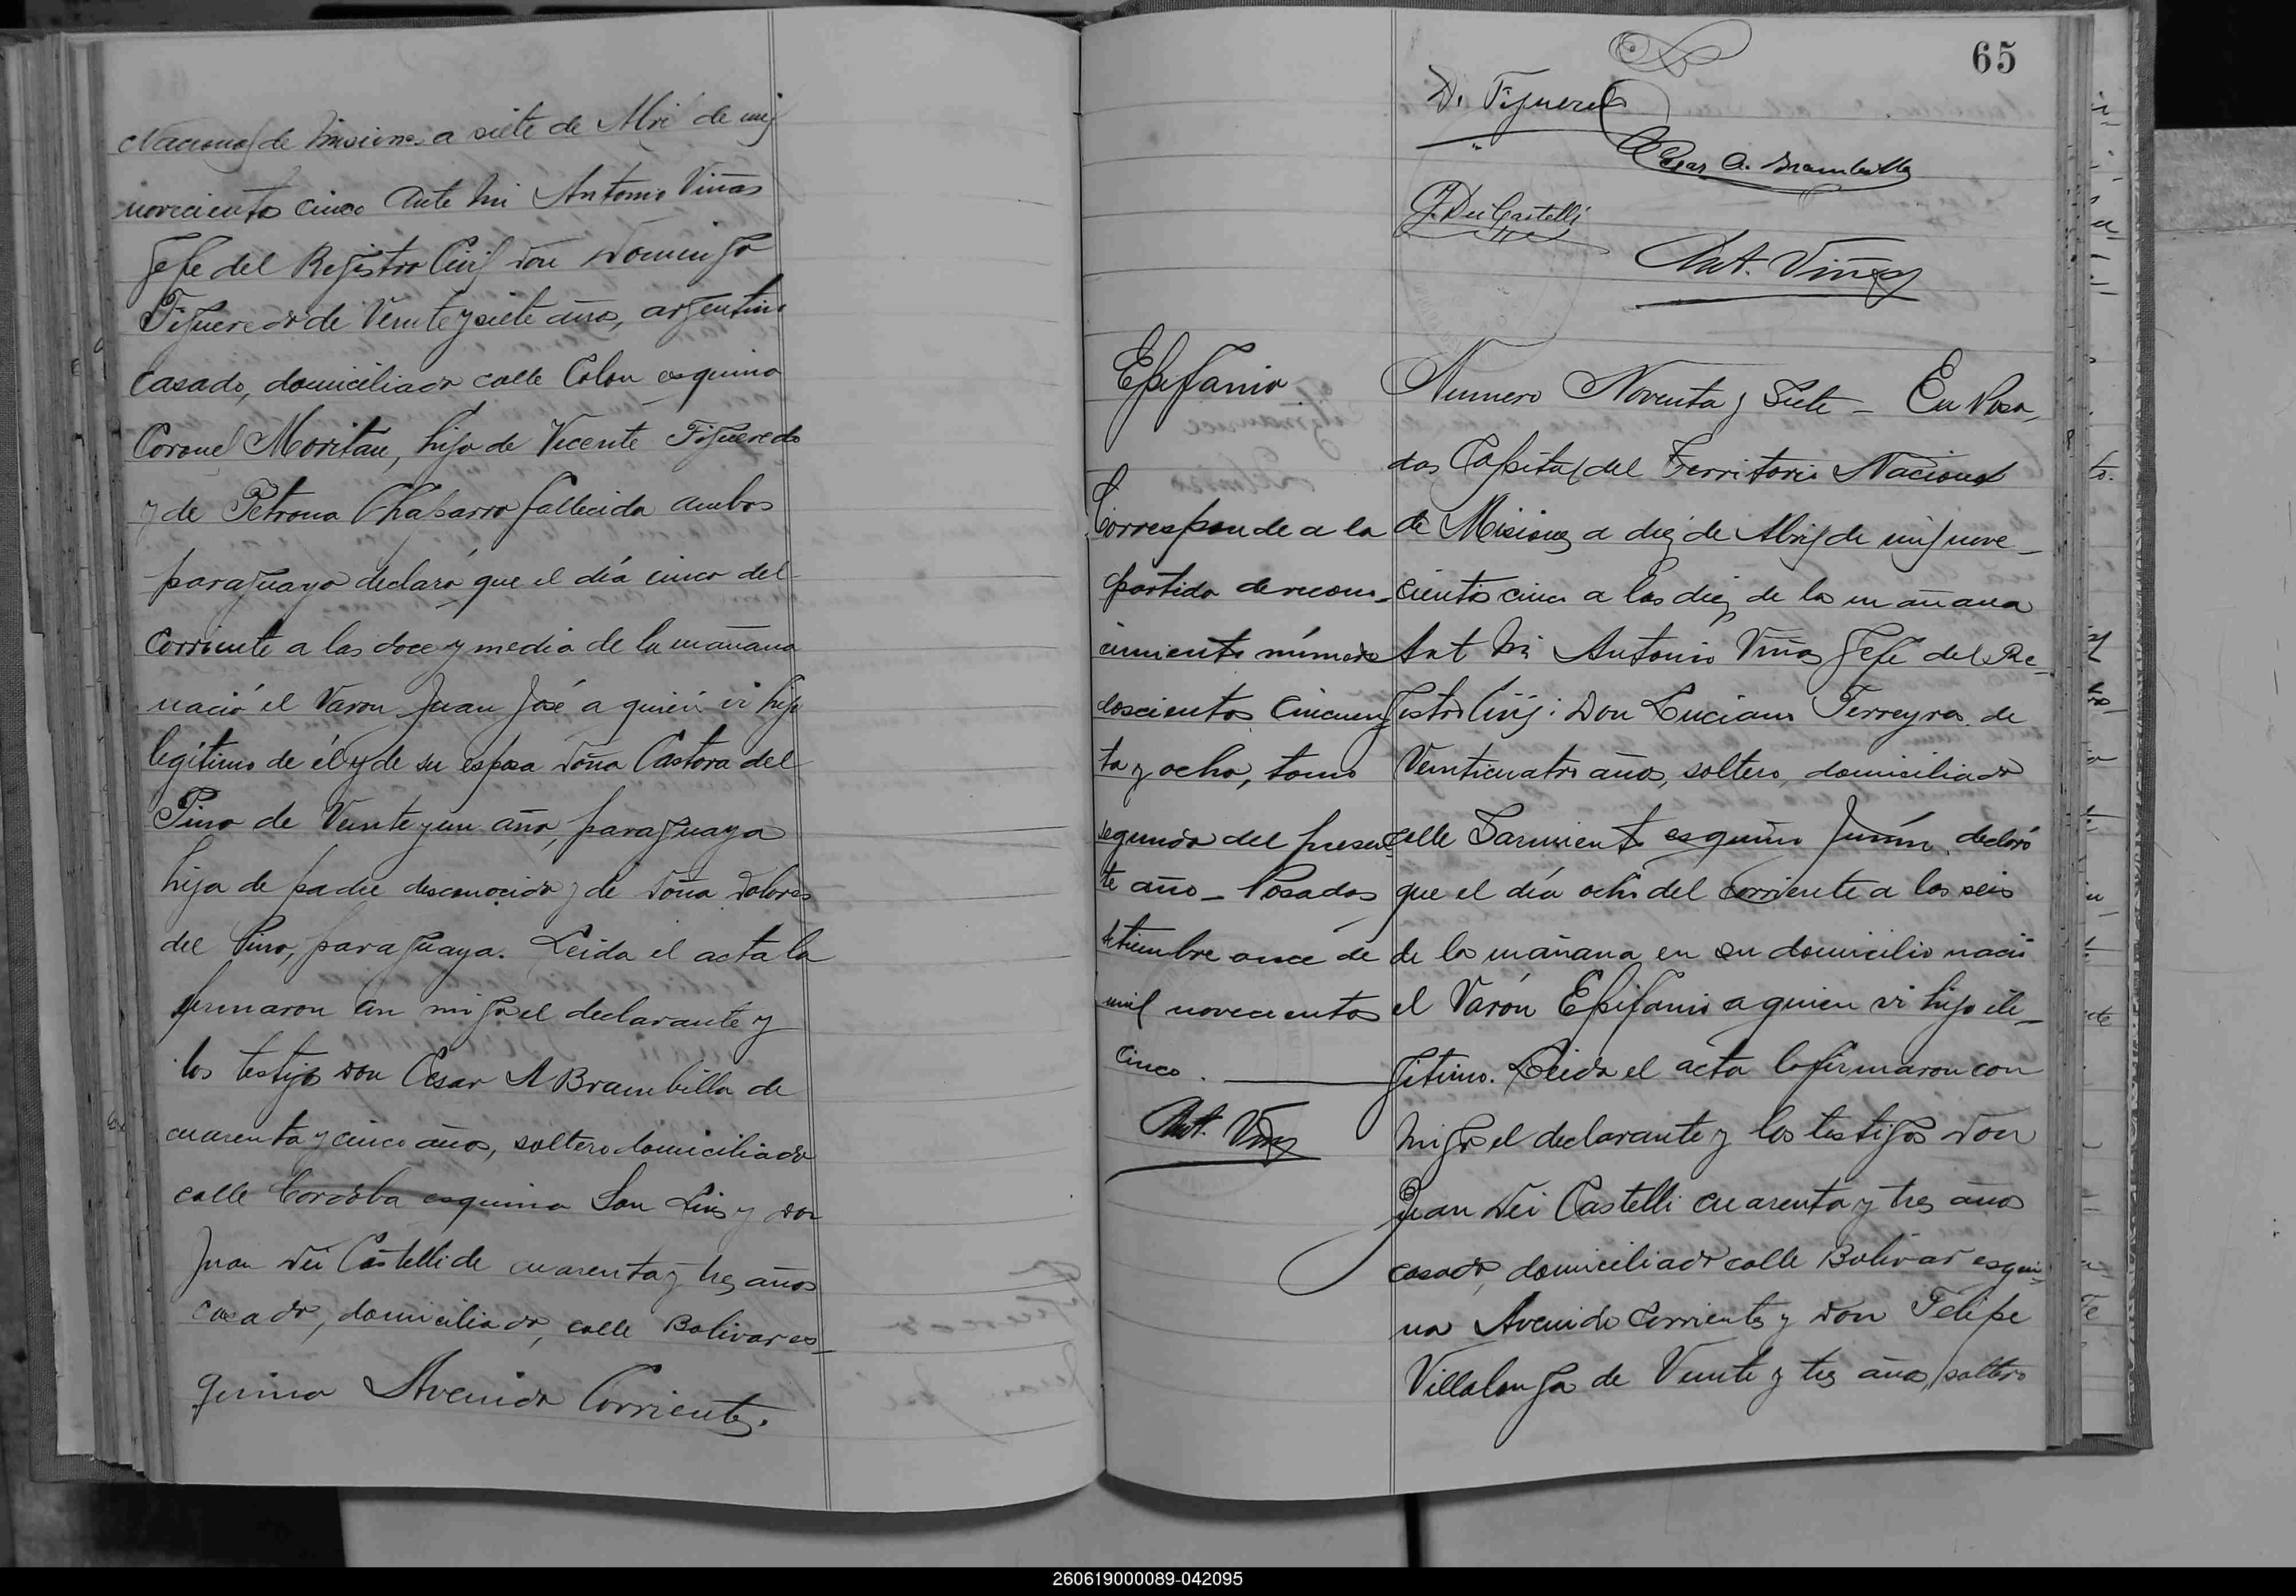 Nacional de Misiones a siete de Abril de mil
novecientos cinco Ante mi Antonio Viñas
Jefe del Registro Civil don Domingo
Figueredo de Veinte y siete años, argentino
casado, domiciliado calle Colon esquina
Coronel Moritan, hijo de Vicente Figueredo
y de Petrona Chaparro fallecida ambos
paraguayo declaró que el día cinco del
corriente a las doce y media de la mañana
nació el Varon Juan José a quién vi hijo
legitimo de él y de su esposa doña Castora del
Pino de Veinte y un año, paraguaya
hija de padre desconocido y de doña Dolores
del Pino, paraguaya. Leida el acta la
firmaron con migo el declarante y
los testigos don Cesar A Brambilla de
cuarenta y cinco años, soltero domiciliado
calle Cordoba esquina San Luis y don
Juan Dei Castelli de cuarenta y tres años
casado, domiciliado, calle Bolivar es_
quina Avenida Corrientes.
65
D. Figueredo
Cesar A. Brambilla
J. Dei Castelli
Ant. Viñas
Epifanio
Corresponde a la
partida de recono_
cimiento número
doscientos cincuen
ta y ocho, tomo
segundo del presen
te año _ Posadas
setiembre once de
mil novecientos
cinco.
Ant. Viñas
Numero Noventa y Siete _ En Posa_
das Capital del Territorio Nacional
de Misiones a diez de Abril de mil nove_
cientos cinco a las diez de la mañana
Ant mi Antonio Viñas Jefe del Re_
gistro Civil: Don Luciano Ferreyra de
Veinticuatro años, soltero, domiciliado
calle Sarmiento esquina Junín declaró
que el día ocho del corriente a las seis
de la mañana en su domicilio nació
el Varón Epifanio a quien vi hijo ile_
gitimo. Leida el acta la firmaron con
migo el declarante y los testigos don
Juan Dei Castelli cuarenta y tres años
casado, domiciliado calle Bolivar esqui_
na Avenida Corrientes y don Felipe
Villalonga de Veinte y tres años, soltero
260619000089-042095